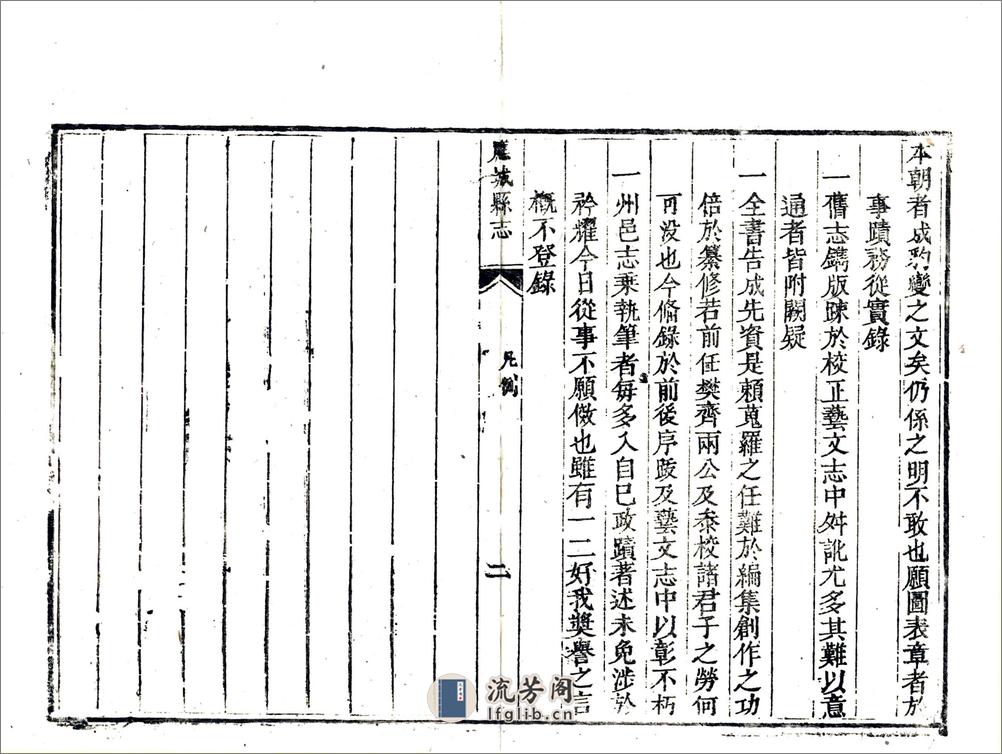 本朝者成豹變之文矣仍係之明不敢也願圖表章者於
事蹟務從實錄
一舊志鐫版踈於校正藝文志中舛訛尤多其難以意
通者皆附闕疑
一全書告成先資是賴蒐羅之任難於編集創作之功
倍於纂修若前任樊齊兩公及叅校諸君子之勞何
可没也今偹錄於前後序䟦及藝文志中以彰不朽
一州邑志乘執筆者每多入自已政蹟著述未免涉於
矜耀今日從事不願倣也雖有一二好我奬譽之言
概不登錄
應城縣志
凡例
二
流芳阁
lfglib.cn